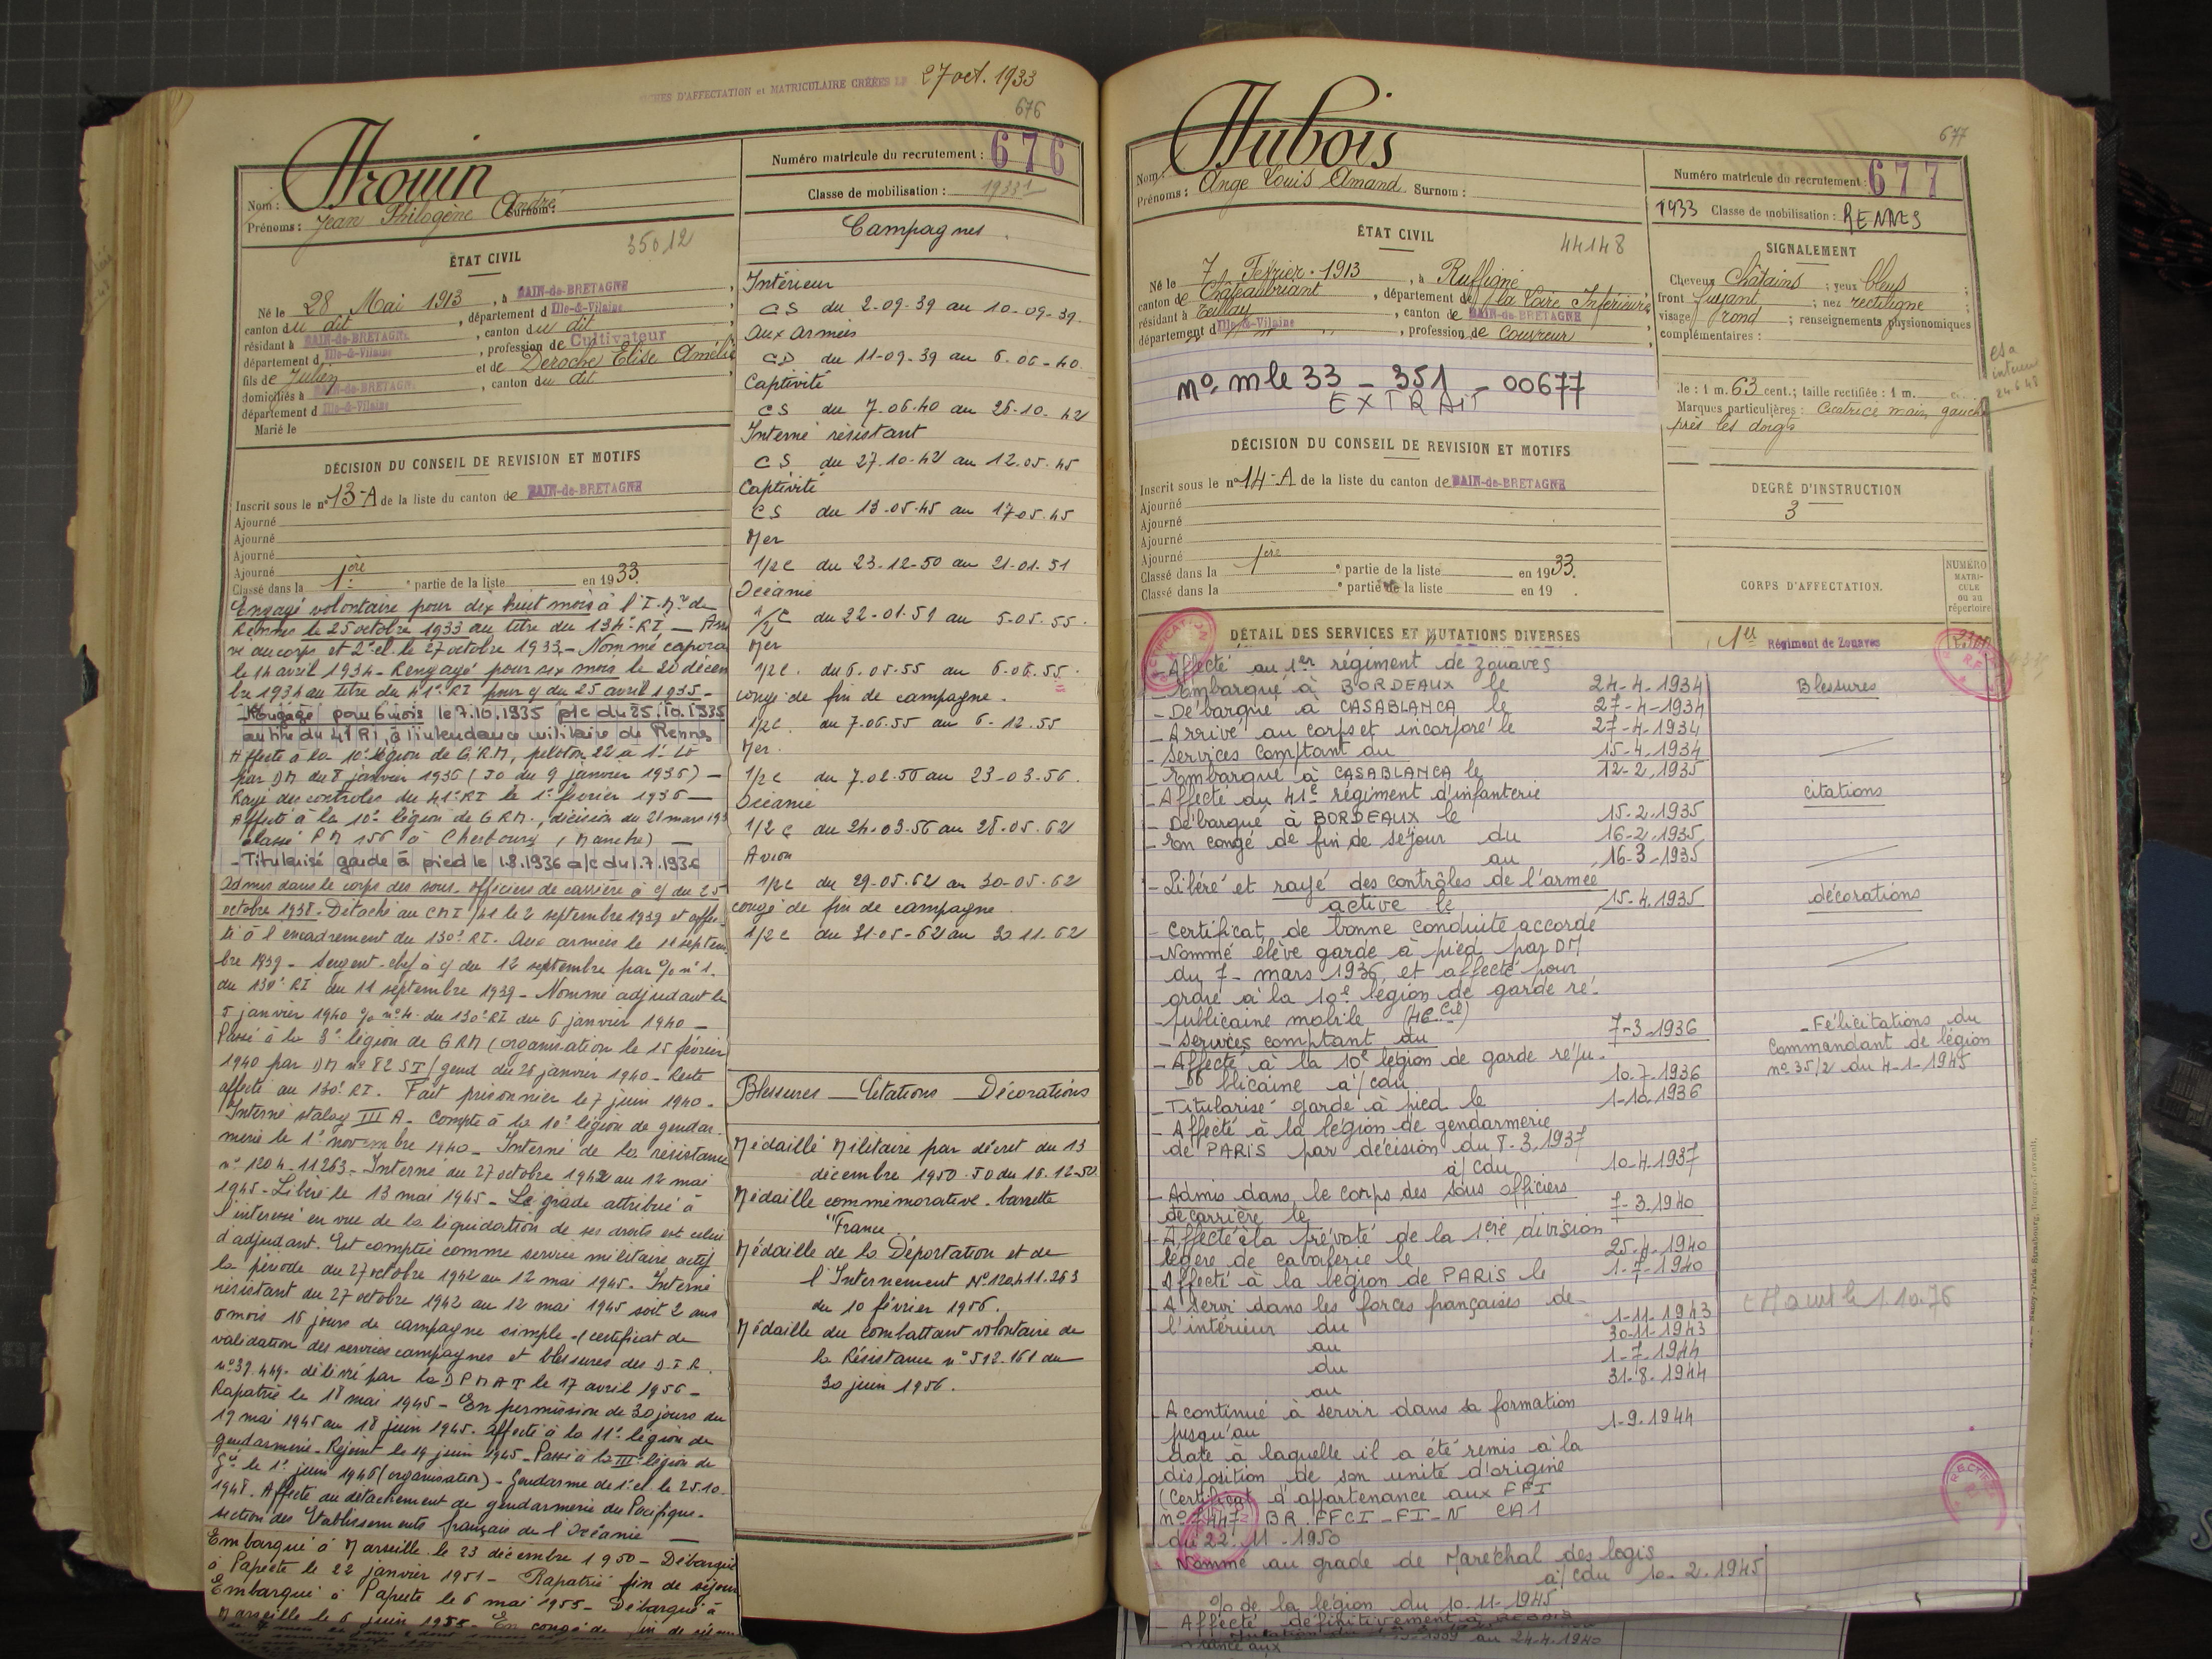 FICHES D'AFFECTATION et MATRICULAIRE CRÉÉES LE 27 oct. 1933
676
Nom : Trouin
Prénoms : Jean Philogène André Surnom :
Numéro matricule du recrutement : 676
Classe de mobilisation : 1933
35012
ÉTAT CIVIL
Né le 28 Mai 1913, à BAIN-de-BRETAGNE,
canton du dit, département d Ille-&-Vilaine
résidant à BAIN-de-BRETAGNE, canton du dit
département d Ille-&-Vilaine, profession de Cultivateur
fils de Julien et de Deroche Elise Amélie
domiciliés à BAIN-de-BRETAGNE, canton du dit
département d Ille-&-Vilaine
Marié le
DÉCISION DU CONSEIL DE REVISION ET MOTIFS
Inscrit sous le n° 13-A de la liste du canton de BAIN-de-BRETAGNE
Ajourné
Ajourné
Ajourné
Ajourné
Classé dans la 1ère partie de la liste en 1933.
Engagé volontaire pour dix huit mois à l'I.Mre de
Rennes le 25 octobre 1933 au titre du 134e RI — Arri
vé au corps et 2e cl. le 27 octobre 1933 - Nommé caporal
le 14 avril 1934 - Rengagé pour six mois le 20 décem
bre 1934 au titre du 41e RI pour c/ du 25 avril 1935 -
- Rengagé pour 6 mois le 7.10.1935 p/c du 25.10.1935
au titre du 41 RI, à l'intendance militaire de Rennes
Affecté à la 10e légion de GRM, peloton 22 à
par DM du 8 janvier 1936 (JO du 9 janvier 1936) -
Rayé des contrôles du 41e RI le 1e février 1936 -
Affecté à la 10e légion de GRM, décision du 21 mars 193
classé PM 156 à Cherbourg (Manche) -
- Titularisé garde à pied le 1.8.1936 a/c du 1.7.1936
Admis dans le corps des sous-officiers de carrière à c/ du 25
octobre 1938 - Détaché au CMI/41 le 2 septembre 1939 et affec
té à l'encadrement du 130e RI. Aux armées le 11 septem
bre 1939 - Sergent-chef à c/ du 12 septembre par % n° 1.
du 130e RI du 11 septembre 1939 - Nommé adjudant le
5 janvier 1940 % n° 4 du 130e RI du 6 janvier 1940 -
Passé à la 3e légion de GRM (organisation le 15 février
1940 par DM n° 82 SI/gend du 26 janvier 1940 - Reste
affecté au 130e RI. Fait prisonnier le 7 juin 1940 -
Interné stalag III A - Compte à la 10e légion de gendar-
merie le 1e novembre 1940 - Interné de la résistance
n° 1204-11263 - Interné du 27 octobre 1942 au 12 mai
1945 - Libéré le 13 mai 1945 - Le grade attribué à
l'intéressé en vue de la liquidation de ses droits est celui
d'adjudant. Est comptée comme service militaire actif
la période du 27 octobre 1942 au 12 mai 1945. Interné
résistant du 27 octobre 1942 au 12 mai 1945 soit 2 ans
6 mois 16 jours de campagne simple - (certificat de
validation des services campagnes et blessures des D.I.R.
n° 39.449 - délivré par la DPMAT le 17 avril 1956 -
Rapatrié le 18 mai 1945 - En permission de 30 jours du
19 mai 1945 au 18 juin 1945. Affecté à la 11e légion de
gendarmerie - Rejoint le 19 juin 1945 - Passé à la III légion de
Gie le 1e juin 1946 (organisation) - Gendarme de 1e cl. le 25.10
1948. Affecté au détachement de gendarmerie du Pacifique -
section des Etablissements français de l'Océanie —
Embarqué à Marseille le 23 décembre 1950 - Débarqué
à Papeete le 22 janvier 1951 - Rapatrié fin de séjour
Embarqué à Papeete le 6 mai 1955 - Débarqué à
Marseille le 6 juin 1955 - En congé de fin de
Campagnes
Intérieur
CS du 2-09-39 au 10-09-39
aux armées
CD du 11-09-39 au 6-06-40
Captivité
CS du 7-06-40 au 26-10-42
Interné résistant
CS du 27-10-42 au 12.05.45
Captivité
CS du 13-05-45 au 17.05.45
Mer
1/2C du 23-12-50 au 21-01-51
Océanie
1/2C du 22-01-51 au 5-05-55
Mer
1/2C du 6-05-55 au 6-06-55
congé de fin de campagne
1/2C du 7.06.55 au 6-12.55
Mer
1/2C du 7.02.56 au 23-03-56
Océanie
1/2C du 24-03-56 au 28-05-62
Avion
1/2C du 29-05-62 au 30-05-62
congé de fin de campagne
1/2C du 31-05-62 au 30 11.62
Blessures - Citations - Décorations
Médaillé Militaire par décret du 13
décembre 1950 JO du 16.12-50
Médaille commémorative - barrette
"France"
Médaille de la Déportation et de
l'Internement N° 120411.263
du 10 février 1956.
Médaille du combattant volontaire de
la Résistance n° 512.161 du
30 juin 1956.
677
Nom : Dubois
Prénoms : Ange Louis Amand Surnom :
Numéro matricule du recrutement : 677
1933 Classe de mobilisation : RENNES
44148
ÉTAT CIVIL
Né le 7 Février 1913, à Ruffigné
canton de Châteaubriant, département de la Loire Inférieure
résidant à Teillay, canton de BAIN-de-BRETAGNE
département d Ille-&-Vilaine, profession de Couvreur
no. mle 33 - 351 - 00677
EXTRAIT
SIGNALEMENT
Cheveux châtains ; yeux bleus ;
front fuyant ; nez rectiligne ;
visage rond ; renseignements physionomiques
complémentaires :
le : 1 m. 63 cent.; taille rectifiée : 1 m. c.
Marques particulières : Cicatrice main gauche
près les doigts
24-6-48
DEGRÉ D'INSTRUCTION
3
CORPS D'AFFECTATION.
NUMÉRO MATRICULE ou au répertoire
DÉCISION DU CONSEIL DE REVISION ET MOTIFS
Inscrit sous le n° 14-A de la liste du canton de BAIN-de-BRETAGNE
Ajourné
Ajourné
Ajourné
Ajourné
Classé dans la 1ère partie de la liste en 1933.
Classé dans la partie de la liste en 19 .
DÉTAIL DES SERVICES ET MUTATIONS DIVERSES
1er Régiment de Zouaves
- Affecté au 1er régiment de zouaves
- Embarqué à BORDEAUX le 24-4.1934
- Débarqué à CASABLANCA le 27-4-1934
- Arrivé au corps et incorporé le 27-4-1934
- Services comptant du 15-4.1934
- Embarqué à CASABLANCA le 12-2.1935
- Affecté du 41e régiment d'infanterie
- Débarqué à BORDEAUX le 15-2.1935
- En congé de fin de séjour du 16-2.1935
au 16-3-1935
- Libéré et rayé des contrôles de l'armée
active le 15-4.1935
- Certificat de bonne conduite accordé
- Nommé élève garde à pied par DM
du 7 - mars 1936 et affecté pour
ordre à la 10e légion de garde ré-
publicaine mobile (46e Cie)
- Services comptant du 7-3-1936
- Affecté à la 10e légion de garde répu-
blicaine a/c du 10.7.1936
- Titularisé garde à pied le 1-10.1936
- Affecté à la légion de gendarmerie
de PARIS par décision du 8-3.1937
a/c du 10-4.1937
- Admis dans le corps des sous officiers
de carrière le 7-3.1940
- Affecté à la prévôté de la 1ère division
légère de cavalerie le 25.4.1940
Affecté à la légion de PARIS le 1-7-1940
- A servi dans les forces françaises de
l'intérieur du 1-11-1943
au 30-11-1943
du 1-7.1944
au 31-8.1944
- A continué à servir dans sa formation
jusqu'au 1-9.1944
date à laquelle il a été remis à la
disposition de son unité d'origine
(Certificat d'appartenance aux FFI
du 22.11.1950
Nommé au grade de Maréchal des logis
a/c du 10.2.1945
% de la légion du 10-11-1945
- Affecté définitivement à
au 24-4-1940
Blessures
citations
décorations
- Félicitations du
Commandant de légion
no 35/2 du 4-1-1945